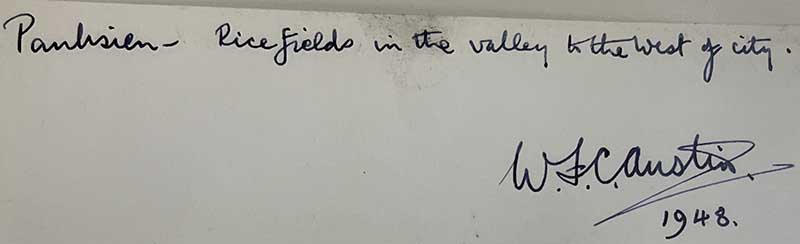 Panhsien – Ricefields in the valley to the West of city.
W.F.C. Austin.
1948.